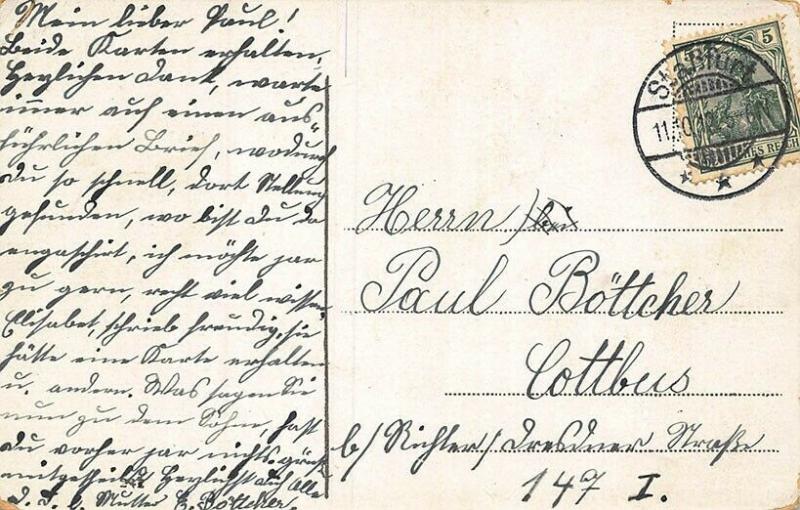 Mein lieber Paul!
Beide Karten erhalten,
Herzlichen Dank, warte
immer auf einen aus-
führlichen Brief, wodurch
Du so schnell, dort Stellung
gefunden, wo bist Du da
engaschirt, ich möchte gar
zu gern, recht viel wissen
Elisabet, schrieb freudig, sie
hätte eine Karte erhalten
u. andern. Was sagen Sie
nun zu dem Sohn, hast
Du vorher gar nichts
mitgetheilt Herzlichst auch Alle
Mutter E. Böttcher.
Staßfurt
11.10.
5
HES REICH
Herrn
Paul Böttcher
Cottbus
b/ Richter/ Dresdner Straße
147 I.